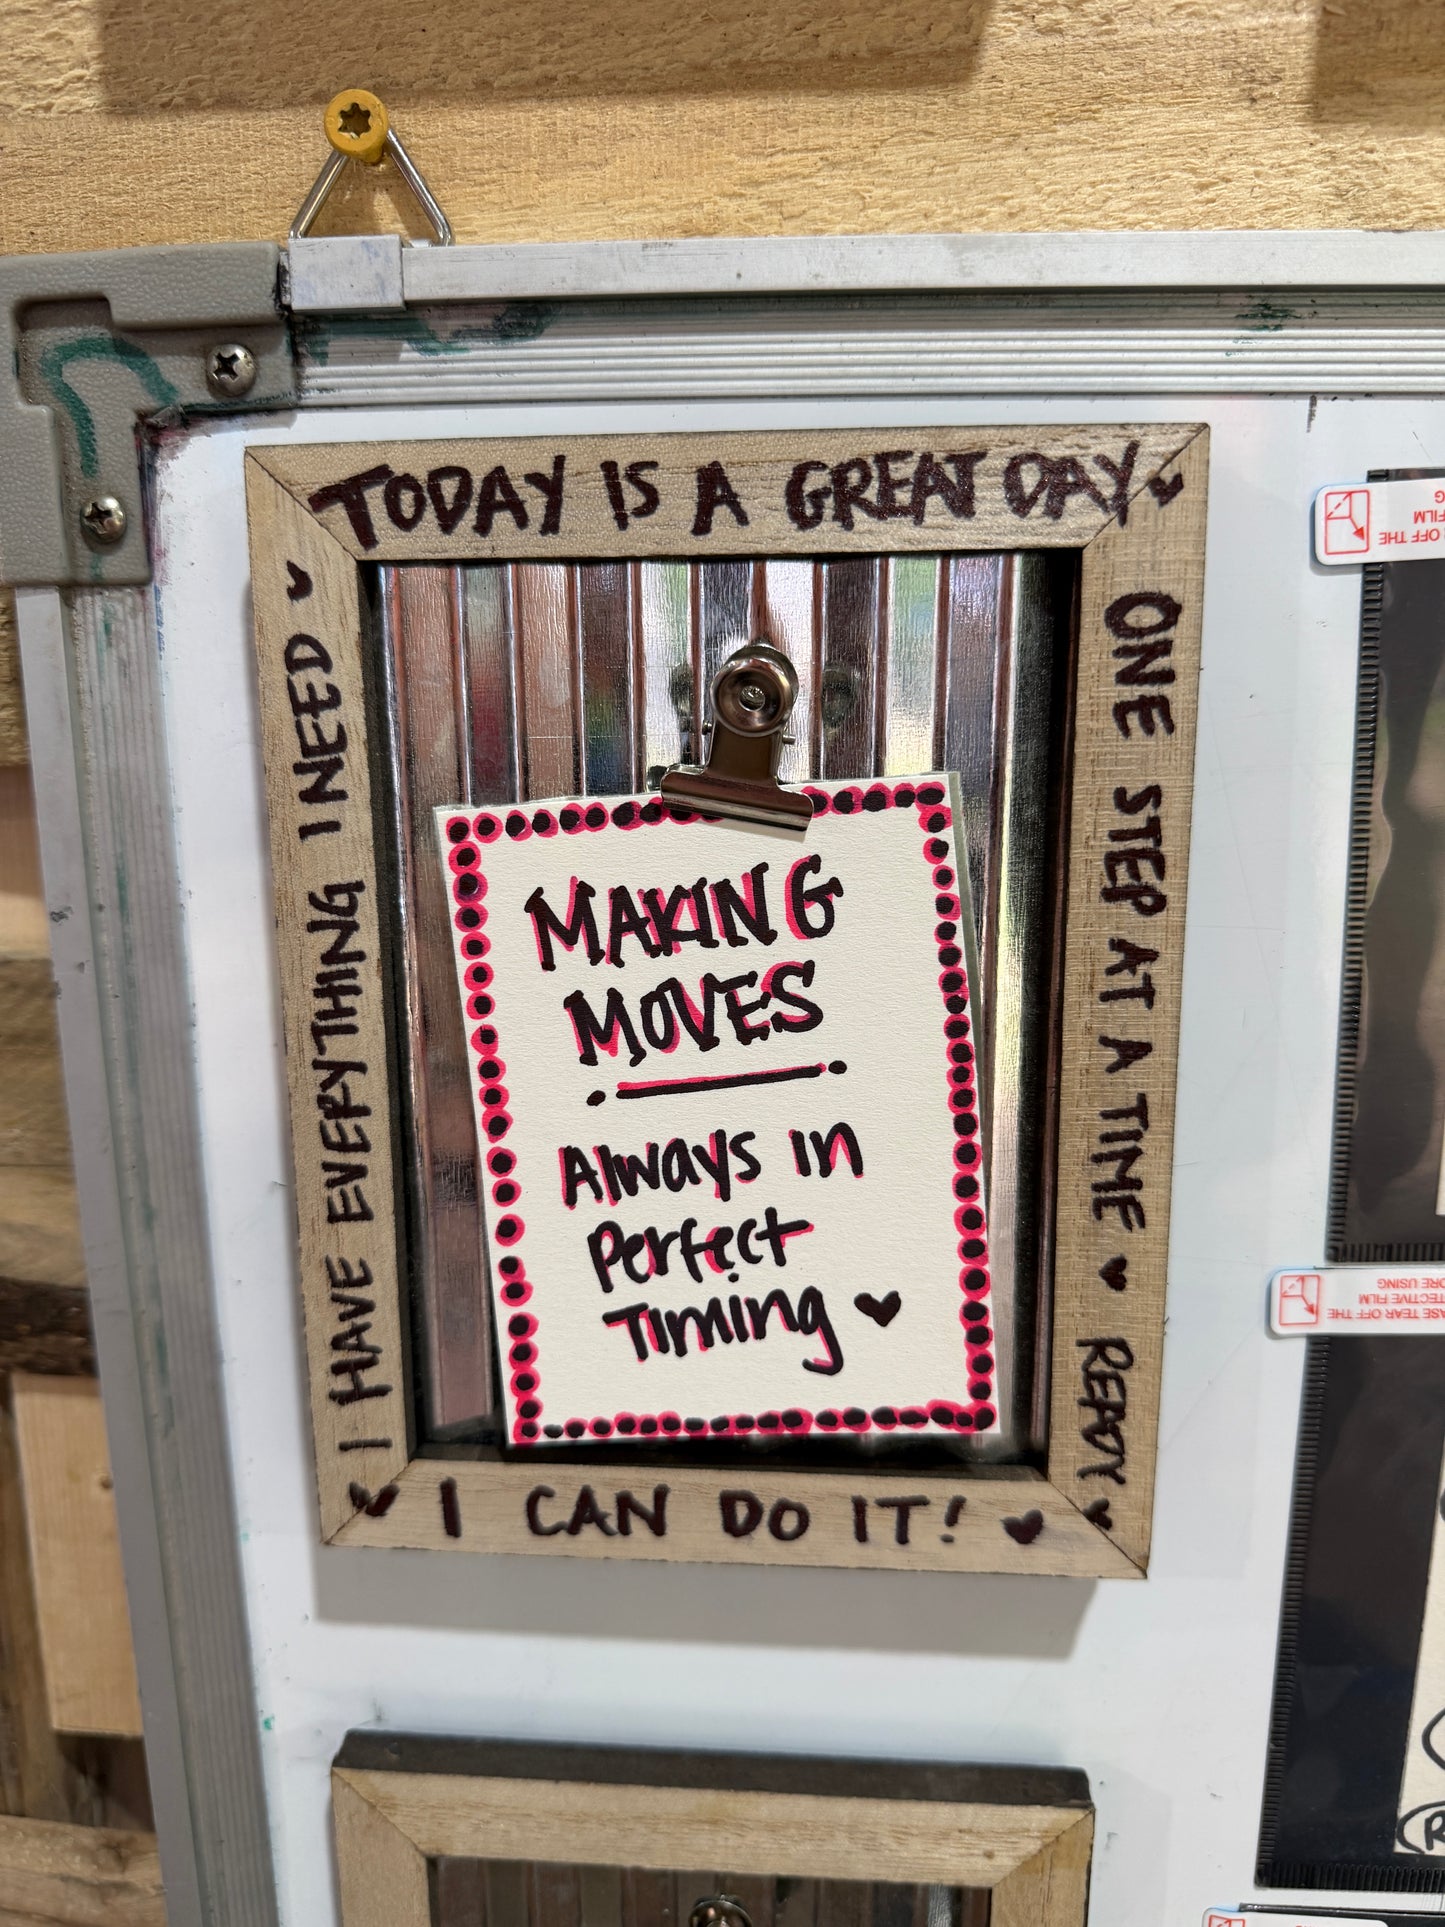 TODAY IS A GREAT DAY
ONE STEP AT A TIME
READY
I CAN DO IT!
I HAVE EVERYTHING I NEED
MAKING
MOVES
Always in
Perfect
Timing
OFF THE
FILM
ORE USING
TECTIVE FILM
ASE TEAR OFF THE